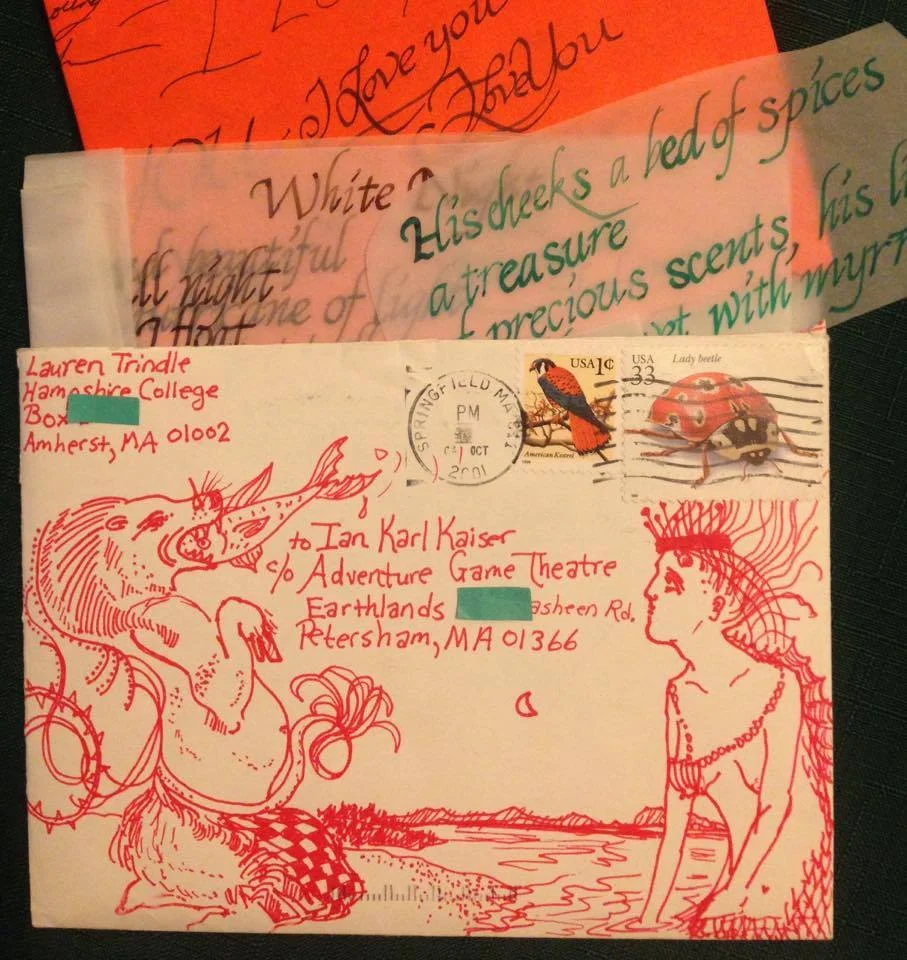 I Love you
I Love You
White Night
beautiful
ll night
hurricane of light
I float
His cheeks a bed of spices
a treasure
of precious scents, his li
wet with myrr
Lauren Trindle
Hampshire College
Box
Amherst, MA 01002
SPRINGFIELD MA
PM
OCT
2001
USA 1¢
American Kestrel
USA
33
Lady beetle
to Ian Karl Kaiser
c/o Adventure Game Theatre
Earthlands asheen Rd.
Petersham, MA 01366